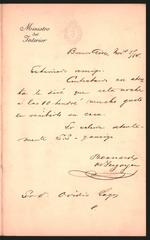 Ministro
del
Interior
Buenos Aires
Estimado amigo:
Contestando en
le diré que esta noche
a las 10 tendré mucho gusto
en recibirlo en casa.
Lo saluda atenta-
mente S.S. y amigo
Bernardo
de Irigoyen
Sr. D. Ovidio